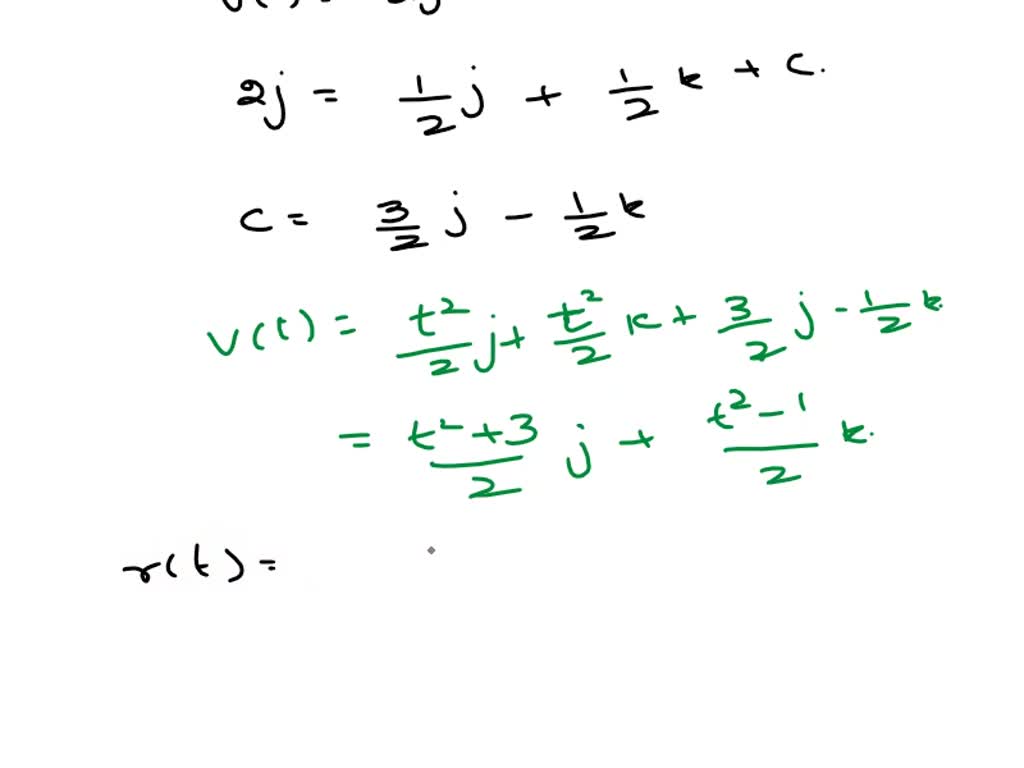 2j = 1/2 j + 1/2 k + c.
c = 3/2 j - 1/2 k
v(t) = t²/2 j + t²/2 k + 3/2 j - 1/2 k.
= t²+3/2 j + t²-1/2 k.
r(t) =